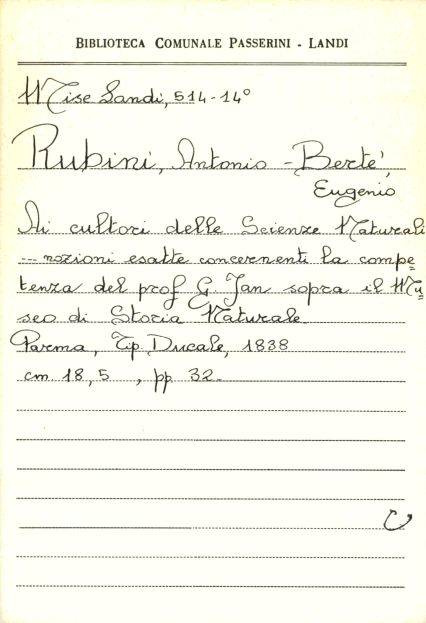 BIBLIOTECA COMUNALE PASSERINI - LANDI
Misc Landi, 514-14°
Rubini, Antonio - Berté,
Eugenio
Ai cultori delle Scienze Naturali
... nozioni esatte concernenti la compe=
tenza del prof G Jan sopra il Mu=
seo di Storia Naturale
Parma, Tip. Ducale, 1838
cm. 18,5 , pp 32.